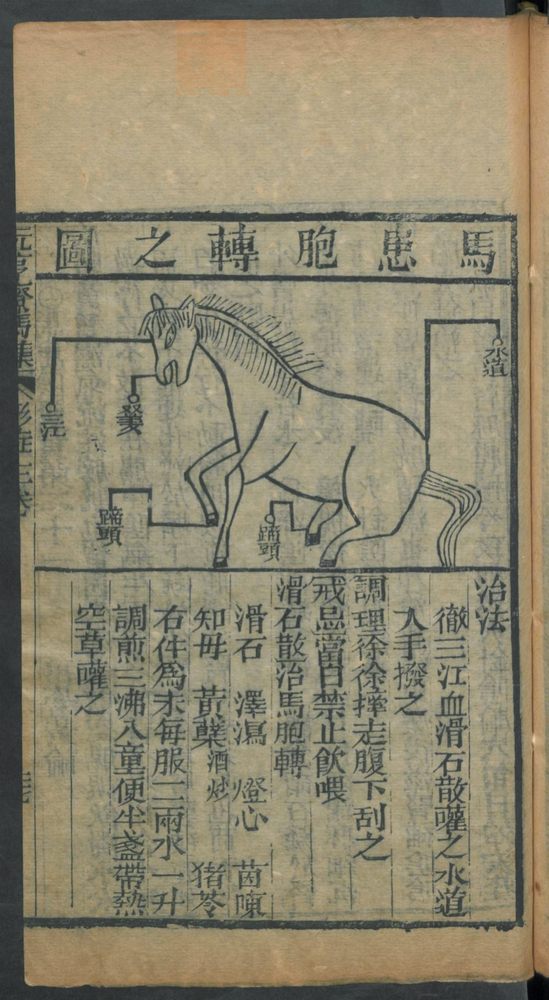 馬患胞轉之圖
水道
三江
蹄頭
蹄頭
治法
徹三江血滑石散嚾之水道
入手撥之
調理徐徐搼走腹下刮之
戒忌當日禁止飲喂
滑石散治馬胞轉
滑石 澤瀉 燈心 茵陳
知毋 黃蘗酒炒 猪苓
右件為末每服二兩水一升
調煎三沸入童便半盞帶熱
空草嚾之